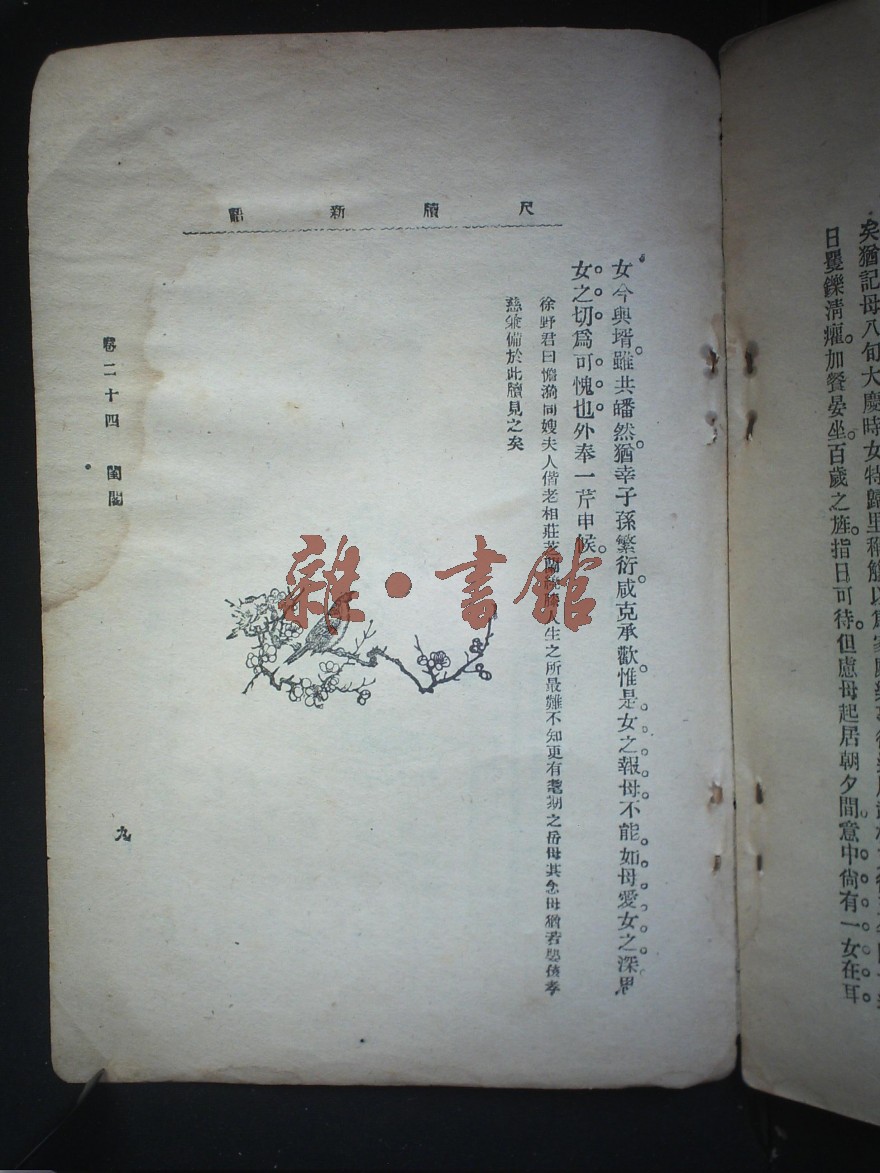 矣猶記母八旬大慶時女特歸里稱觴以爲家庭樂事
日矍鑠清癯加餐晏坐百歲之旌指日可待但慮母起居朝夕間意中尙有一女在耳
尺牘新語
女今與壻雖共皤然猶幸子孫繁衍咸克承歡惟是女之報母不能如母愛女之深思
女之切爲可愧也外奉一芹申候
徐野君曰憺漪同嫂夫人偕老相莊芝蘭繞膝人生之所最難不知更有耄期之岳母其念母猶若嬰孩孝
慈兼備於此牘見之矣
卷二十四 閨閣
九
雜·書館